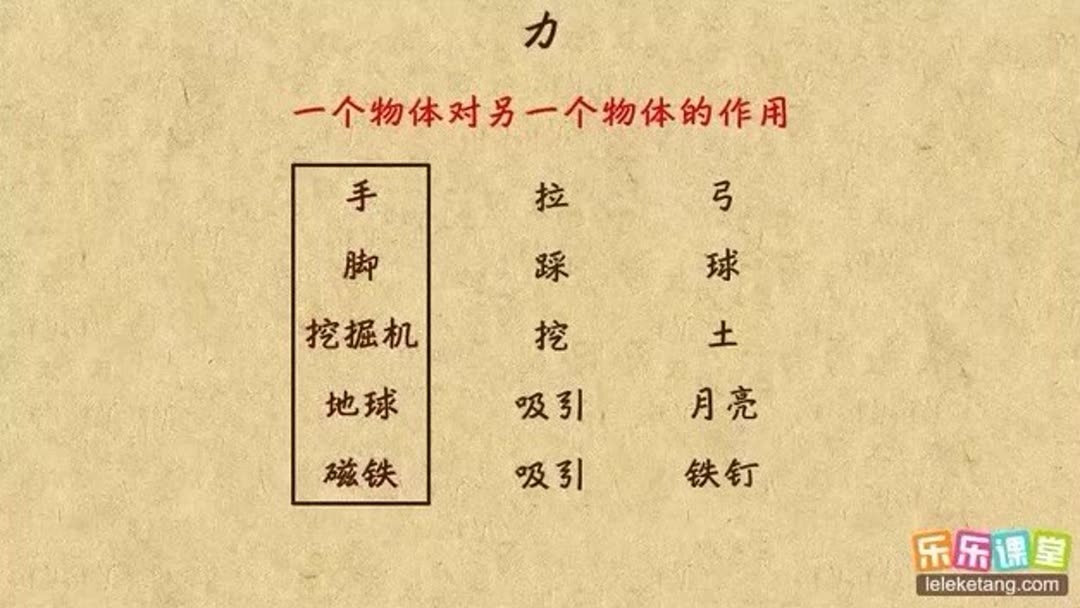 力
一个物体对另一个物体的作用
手 拉 弓
脚 踩 球
挖掘机 挖 土
地球 吸引 月亮
磁铁 吸引 铁钉
乐乐课堂
leleketang.com